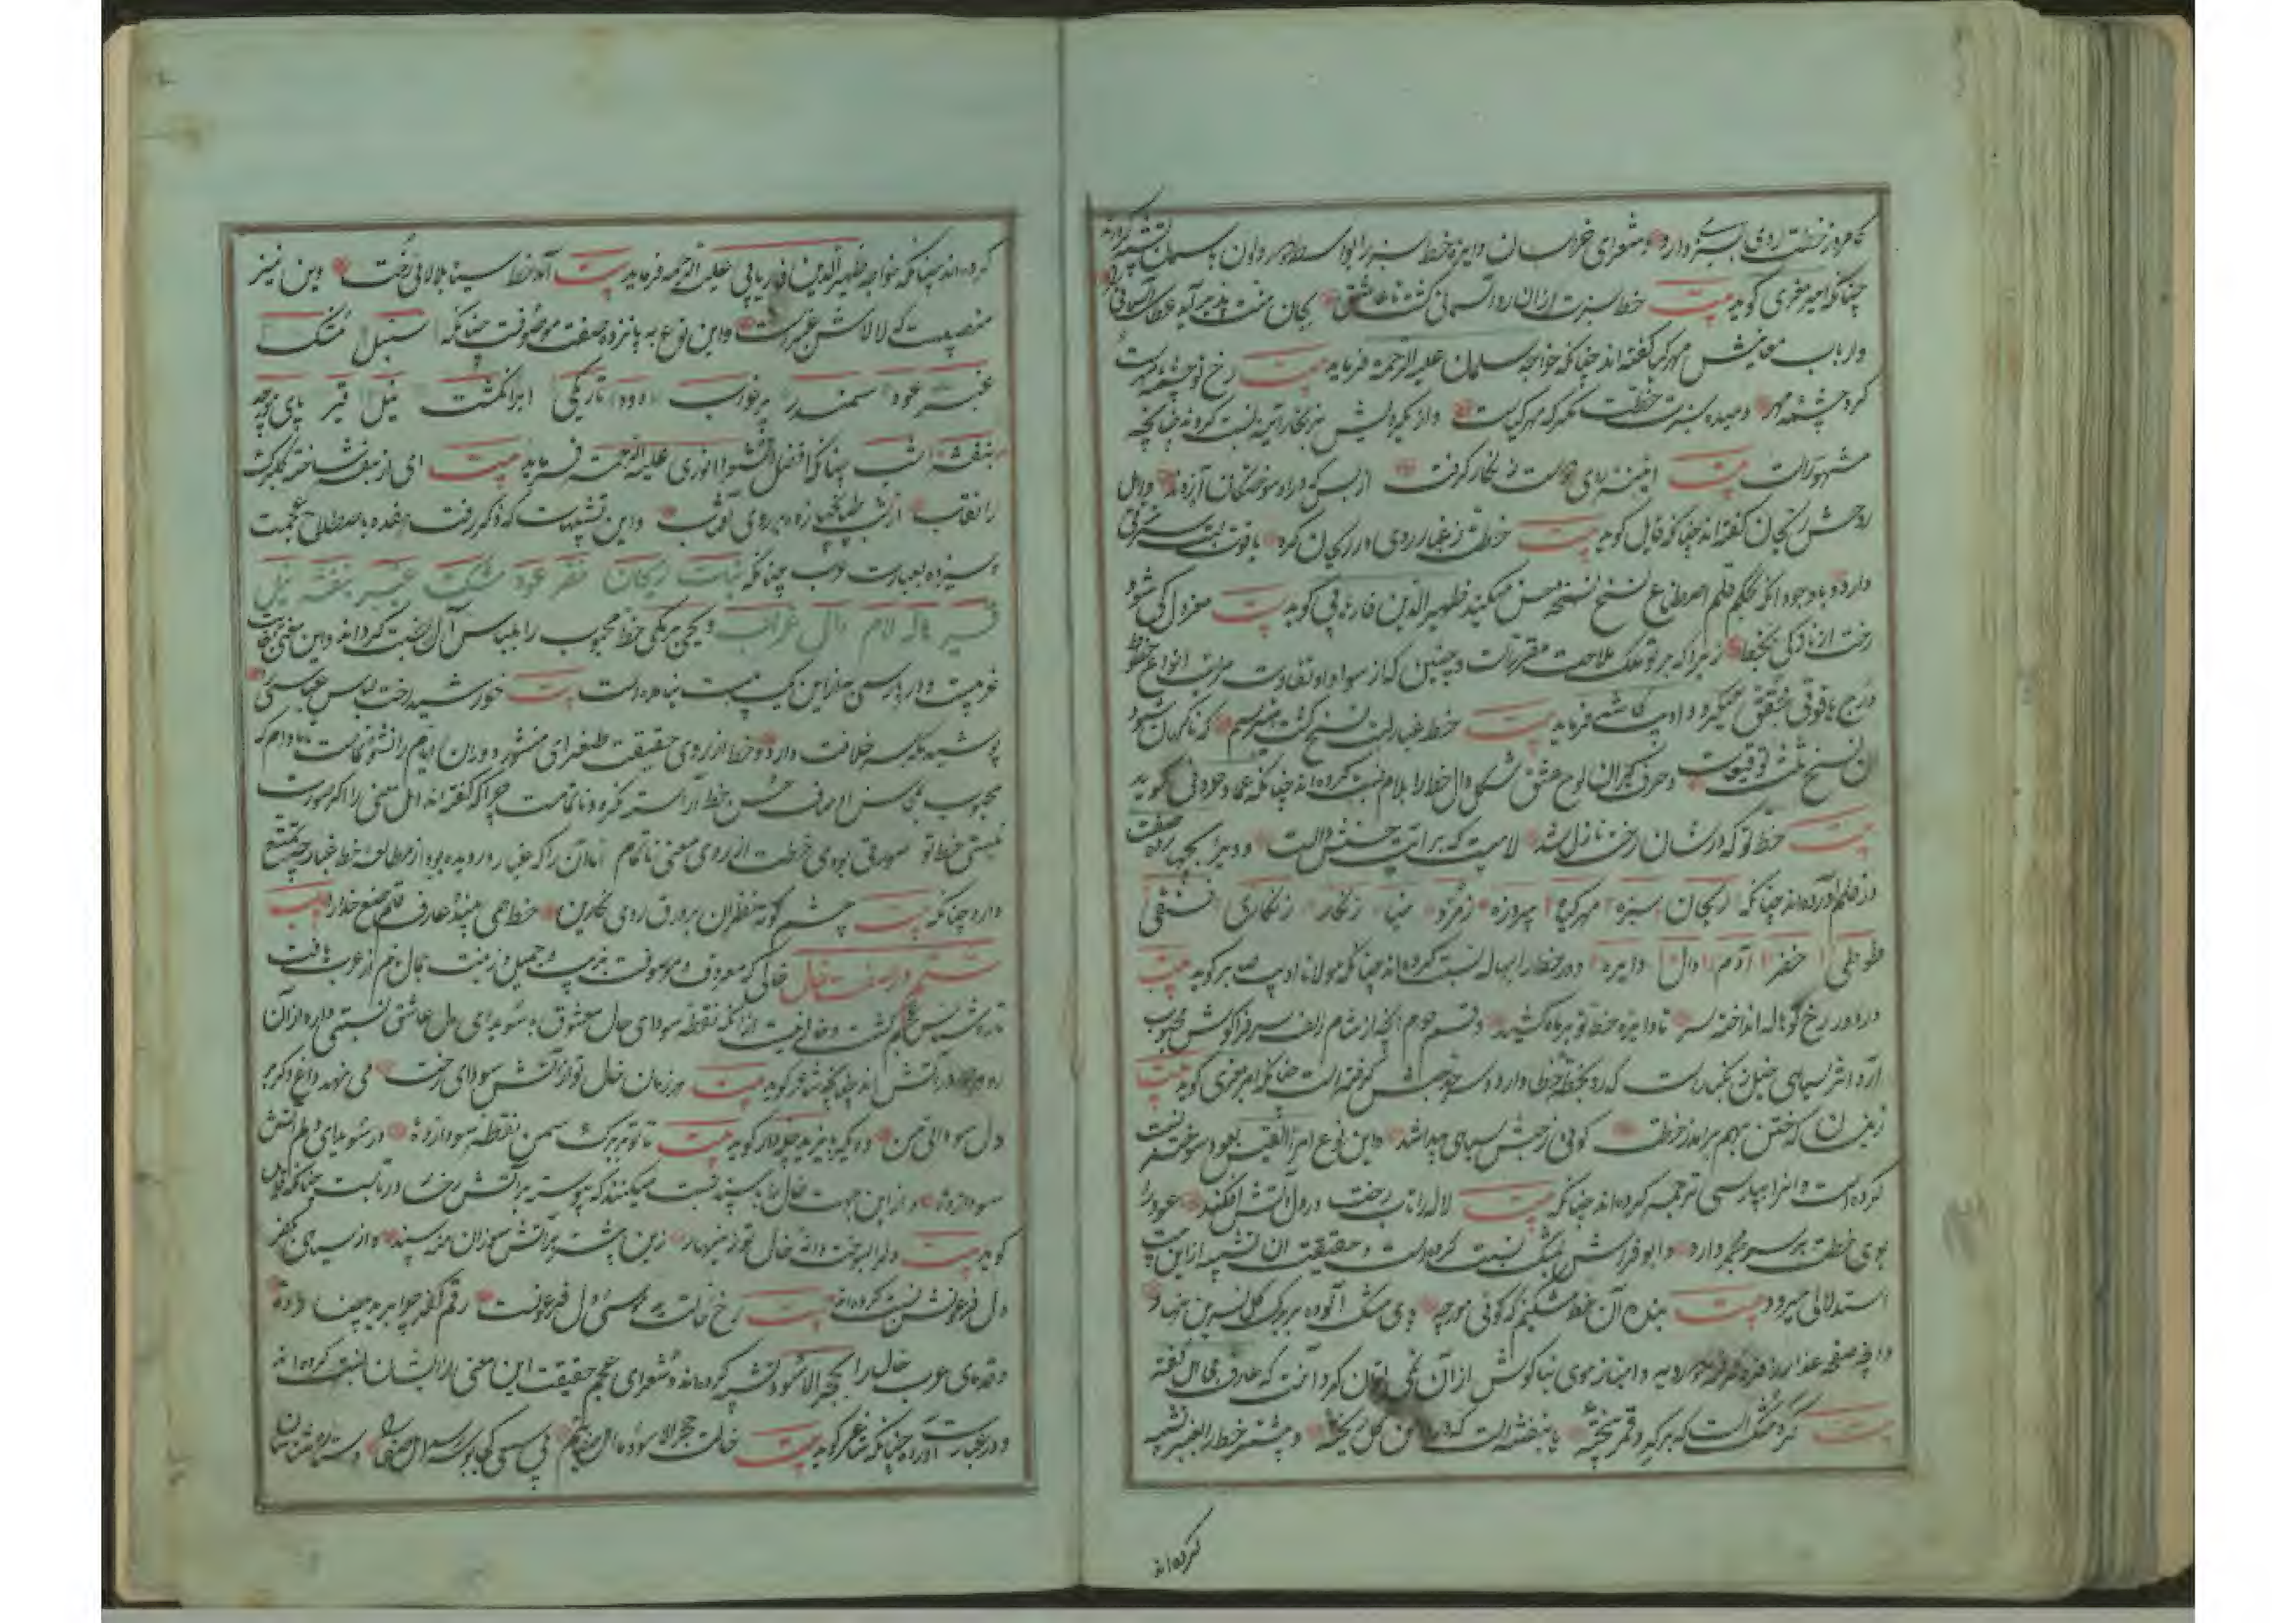 کامروز خطت روی بسبزی دارد و شعرای خراسان دایره خط سبز را
چنانکه امیر معزی گوید بیت خط سبزت از آن رو آسمانی گشت تا عاشق بجان منت پذیر آید
و ارباب معانیش مهر گیا گفته اند چنانکه خواجه سلمان علیه الرحمه فرماید بیت رخ تو چشمه مهرست
گرد چشمه مهر دمیده سبزه خطت نگر که مهر گیاست و از یکرویش بزنگار آینه نسبت کرده اند چنانچه
مشهورات بیت آیینه روی دوست زنگار گرفت از بس که درو سوختگان آه زدند و اهل
روحش ریحان گفته اند چنانکه قایل گوید بیت خطت ز غبار روی در ریحان کرد یاقوت لبت
دارد با وجود آنکه بحکم قلم اصطناع نسخ نسخه حسن میکند ظهیر الدین فاریابی گوید بیت معزول کی شود
رخت از نازکی بخط زیرا که بر تو ملک ملاحت مقررست و چنین که از سواد او تفاوت مراتب انواع خطوط
درج یاقوتی محقق میگیرد و ادیب کاشی فرماید بیت خط غبار لبت نسخ گشت میترسم که ناگهان شود
آن نسخ ثلث توقیعات و حرف گیران لوح عشق شکل دال خط را بلام نسبت کرده اند چنانکه عماد حروفی گوید
بیت خط تو که در شان رخت نازل شد لامیست که بر آیت حسنش دالست و دیگر بچهارده صفت
در قلم آورده اند چنانکه ریحان سبزه مهر گیا پیروزه زمرد مینا زنگار زنگاری فستقی
طوطی خضر آدم دال دایره و دور خط را بهاله نسبت کرده اند چنانکه مولانا ادیب صابر گوید بیت
در دور رخ تو هاله انداخته سر تا دایره خط تو بر ماه کشید و قسم دوم آنچه از شام زلف سر فرا گوش محبوب
آرد اثر سپاهی خیل زنگبارست که رو بخطه خطا دارد و سرحد حبش گرفته است چنانکه امیر معزی گوید بیت
زینسان که ختن بهم برآمد ز خطت گویی ز حبش سپاهی پیدا شد و این نوع امرء القیس بعود سوخته نسبت
کرده است و آنرا بپارسی ترجمه کرده اند چنانکه بیت لاله را تاب رخت در دل آتش افکند عود را
بوی خطت بر سر مجمر دارد و ابو فراس بمشک نسبت کرده است و حقیقت آن تشبیه از این بیت
استدلال میرود بیت بنده آن خط مشکینم که گویی مورچه پی مشک آلوده بر برگ گل نسرین نهاد
و آنچه صفحه عذار و از موی بناگوش از آن نمی توان کرد آنست که عارف قایل گفته
بیت گرد مشکست که بر گرد قمر بیخته یا بنفشه است که در دامن گل ریخته و بیشتر خط را بعنبر تشبیه
کرده اند
کرده اند چنانکه خواجه ظهیر الدین فاریابی علیه الرحمه فرماید بیت آن خط سیه بلالای رخت و این نیز
منصبیست که لالاش عنبرست و این نوع به پانزده صفت موصوفست چنانکه سنبل مشک
عنبر عود سمندر پر غراب دود تاریکی ابر انگشت نیل قیر پای مورچه
بنفشه شب چنانکه افضل الشعرا انوری علیه الرحمه فرماید بیت ای از بنفشه ساخته گلبرگ
را نقاب از شب طپانچها زده بر روی آفتاب و این تشبیهات که ذکر رفت هفده باصطلاح عجمست
و سیزده بعبارت عرب چنانکه نبات ریحان خضر عود مشک عنبر بنفشه نیل
قیر هاله لام دال غراب و یحیی برمکی خط محبوب را بلباس آل نسبت کرده اند و این معنی بغایت
غریبست و در پارسی جز این یک بیت نیامده است بیت خورشید رخت لباس عباسی
پوشیده مگر سر خلافت دارد و خط از روی حقیقت طغرای منشور دوران ایام رانشو نماست مادام که
محبوب بمحاسن اوصاف حسن خط آراسته نگردد ناتمامست چرا که گفته اند اهل معنی را اگر صورت
نبستی خط تو صورتی بودی خطت از روی معنی ناتمام اما آن را که غبار در دیده بود از مطالعه خط غبار چه تمتع
دارد چنانکه بیت چشم کوته نظران بر ورق روی نگارین خط همی بیند و عارف قلم صنع خدا را بیت
قسم در صفت خال خالی که معروف و موصوفست بخوب و جمیل و زینت جمال هم از عرب یافت
نسبتی دارد از آن
رو در آتش اند چنانچه شاعر گوید بیت هر زمان خال تو از آتش سودای رخت می نهد داغ دگر بر
دل سودایی من و دیگری نیز گوید بیت تا تو بر برگ سمن نقطه سودا زده در سویدای دلم آتش
سودا زده و از این جهت خال را بسپند نسبت میکنند که پیوسته بر آتش رخت در تابست چنانکه قایل
گوید بیت دلم را سوخت دانه خال تو زینهار زین بیشتر بر آتش سوزان منه سپند و از سیاهی بکفر
دل فرعونش نسبت کرده اند بیت رخ و خالت ید موسی و دل فرعونست رقم کفر چرا بر ید بیضا زده
و قدمای عرب خال را بحجر الاسود تشبیه کرده اند و شعرای عجم حقیقت این معنی را از ایشان نسبت کرده اند
و در عبارت آورده چنانکه شاعر گوید بیت خالت حجر الاسود